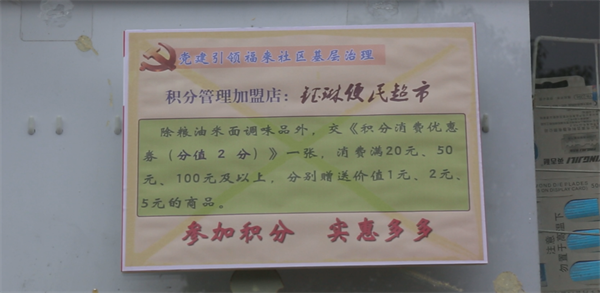 党建引领福来社区基层治理
积分管理加盟店：钰琳便民超市
除粮油米面调味品外，交《积分消费优惠
券（分值 2 分）》一张，消费满20元、50
元、100元及以上，分别赠送价值1元、2元、
5元的商品。
参加积分 实惠多多
注意
勿置于高温下